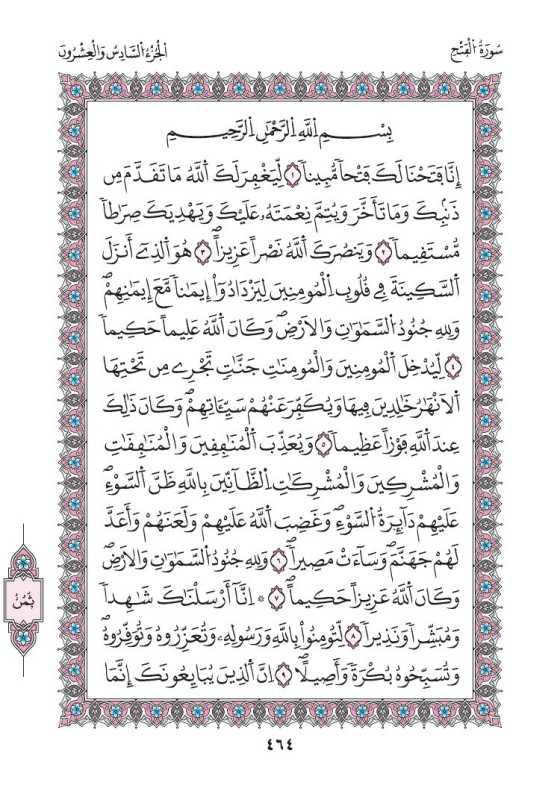 سُورَةُ الْفَتْحِ
الْجُزْءُ السَّادِسُ وَالْعِشْرُونَ
بِسْمِ اِ۬للَّهِ اِ۬لرَّحْمَٰنِ اِ۬لرَّحِيمِ
إِنَّا فَتَحْنَا لَكَ فَتْحاٗ مُّبِيناٗ ١ لِّيَغْفِرَ لَكَ اَ۬للَّهُ مَا تَقَدَّمَ مِن
ذَنۢبِكَ وَمَا تَأَخَّرَ وَيُتِمَّ نِعْمَتَهُۥ عَلَيْكَ وَيَهْدِيَكَ صِرَٰطاٗ
مُّسْتَقِيماٗ ٢ وَيَنصُرَكَ اَ۬للَّهُ نَصْراً عَزِيزاًۖ ٣ هُوَ اَ۬لذِےٓ أَنزَلَ
اَ۬لسَّكِينَةَ فِے قُلُوبِ اِ۬لْمُومِنِينَ لِيَزْدَادُوٓاْ إِيمَٰناٗ مَّعَ إِيمَٰنِهِمْۖ
وَلِلهِ جُنُودُ اُ۬لسَّمَٰوَٰتِ وَالَارْضِۖ وَكَانَ اَ۬للَّهُ عَلِيماً حَكِيماٗ
٤ لِّيُدْخِلَ اَ۬لْمُومِنِينَ وَالْمُومِنَٰتِ جَنَّٰتٖ تَجْرِے مِن تَحْتِهَا
اَ۬لَانْهَٰرُ خَٰلِدِينَ فِيهَا وَيُكَفِّرَ عَنْهُمْ سَيِّـَٔاتِهِمْۖ وَكَانَ ذَٰلِكَ
عِندَ اَ۬للَّهِ فَوْزاً عَظِيماٗ ٥ وَيُعَذِّبَ اَ۬لْمُنَٰفِقِينَ وَالْمُنَٰفِقَٰتِ
وَالْمُشْرِكِينَ وَالْمُشْرِكَٰتِ اِ۬لظَّآنِّينَ بِاللَّهِ ظَنَّ اَ۬لسَّوْءِۖ
عَلَيْهِمْ دَآئِرَةُ اُ۬لسَّوْءِۖ وَغَضِبَ اَ۬للَّهُ عَلَيْهِمْ وَلَعَنَهُمْ وَأَعَدَّ
لَهُمْ جَهَنَّمَۖ وَسَآءَتْ مَصِيراٗۖ ٦ وَلِلهِ جُنُودُ اُ۬لسَّمَٰوَٰتِ وَالَارْضِۖ
وَكَانَ اَ۬للَّهُ عَزِيزاً حَكِيماًۖ ٧ ۞ اِنَّآ أَرْسَلْنَٰكَ شَٰهِداٗ
وَمُبَشِّراٗ وَنَذِيراٗ ٨ لِّتُومِنُواْ بِاللَّهِ وَرَسُولِهِۦ وَتُعَزِّرُوهُ وَتُوَقِّرُوهُۖ
وَتُسَبِّحُوهُ بُكْرَةٗ وَأَصِيلاًۖ ٩ اِنَّ اَ۬لذِينَ يُبَايِعُونَكَ إِنَّمَا
ثُمُنْ
٤٦٤